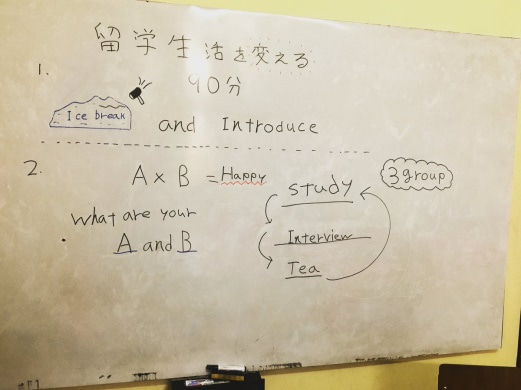 留学生活を変える
90分
1.
Ice break
and Introduce
2.
A × B = Happy
3 group
study
what are your
A and B
Interview
Tea